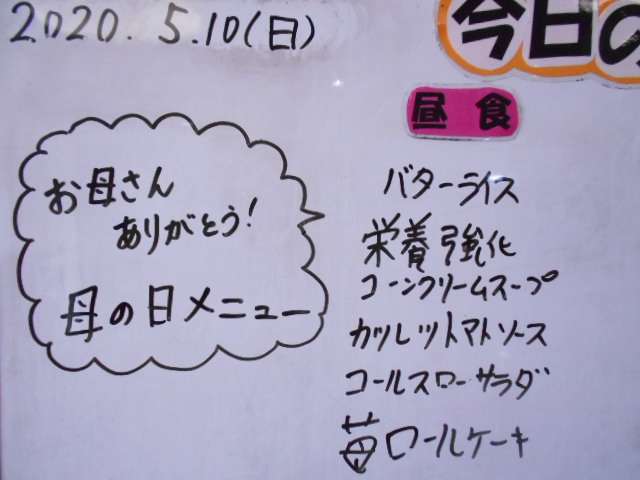 2020. 5.10(日)
今日の
昼食
お母さん
ありがとう!
母の日メニュー
バターライス
栄養強化
コーンクリームスープ
カツレツトマトソース
コールスローサラダ
苺ロールケーキ